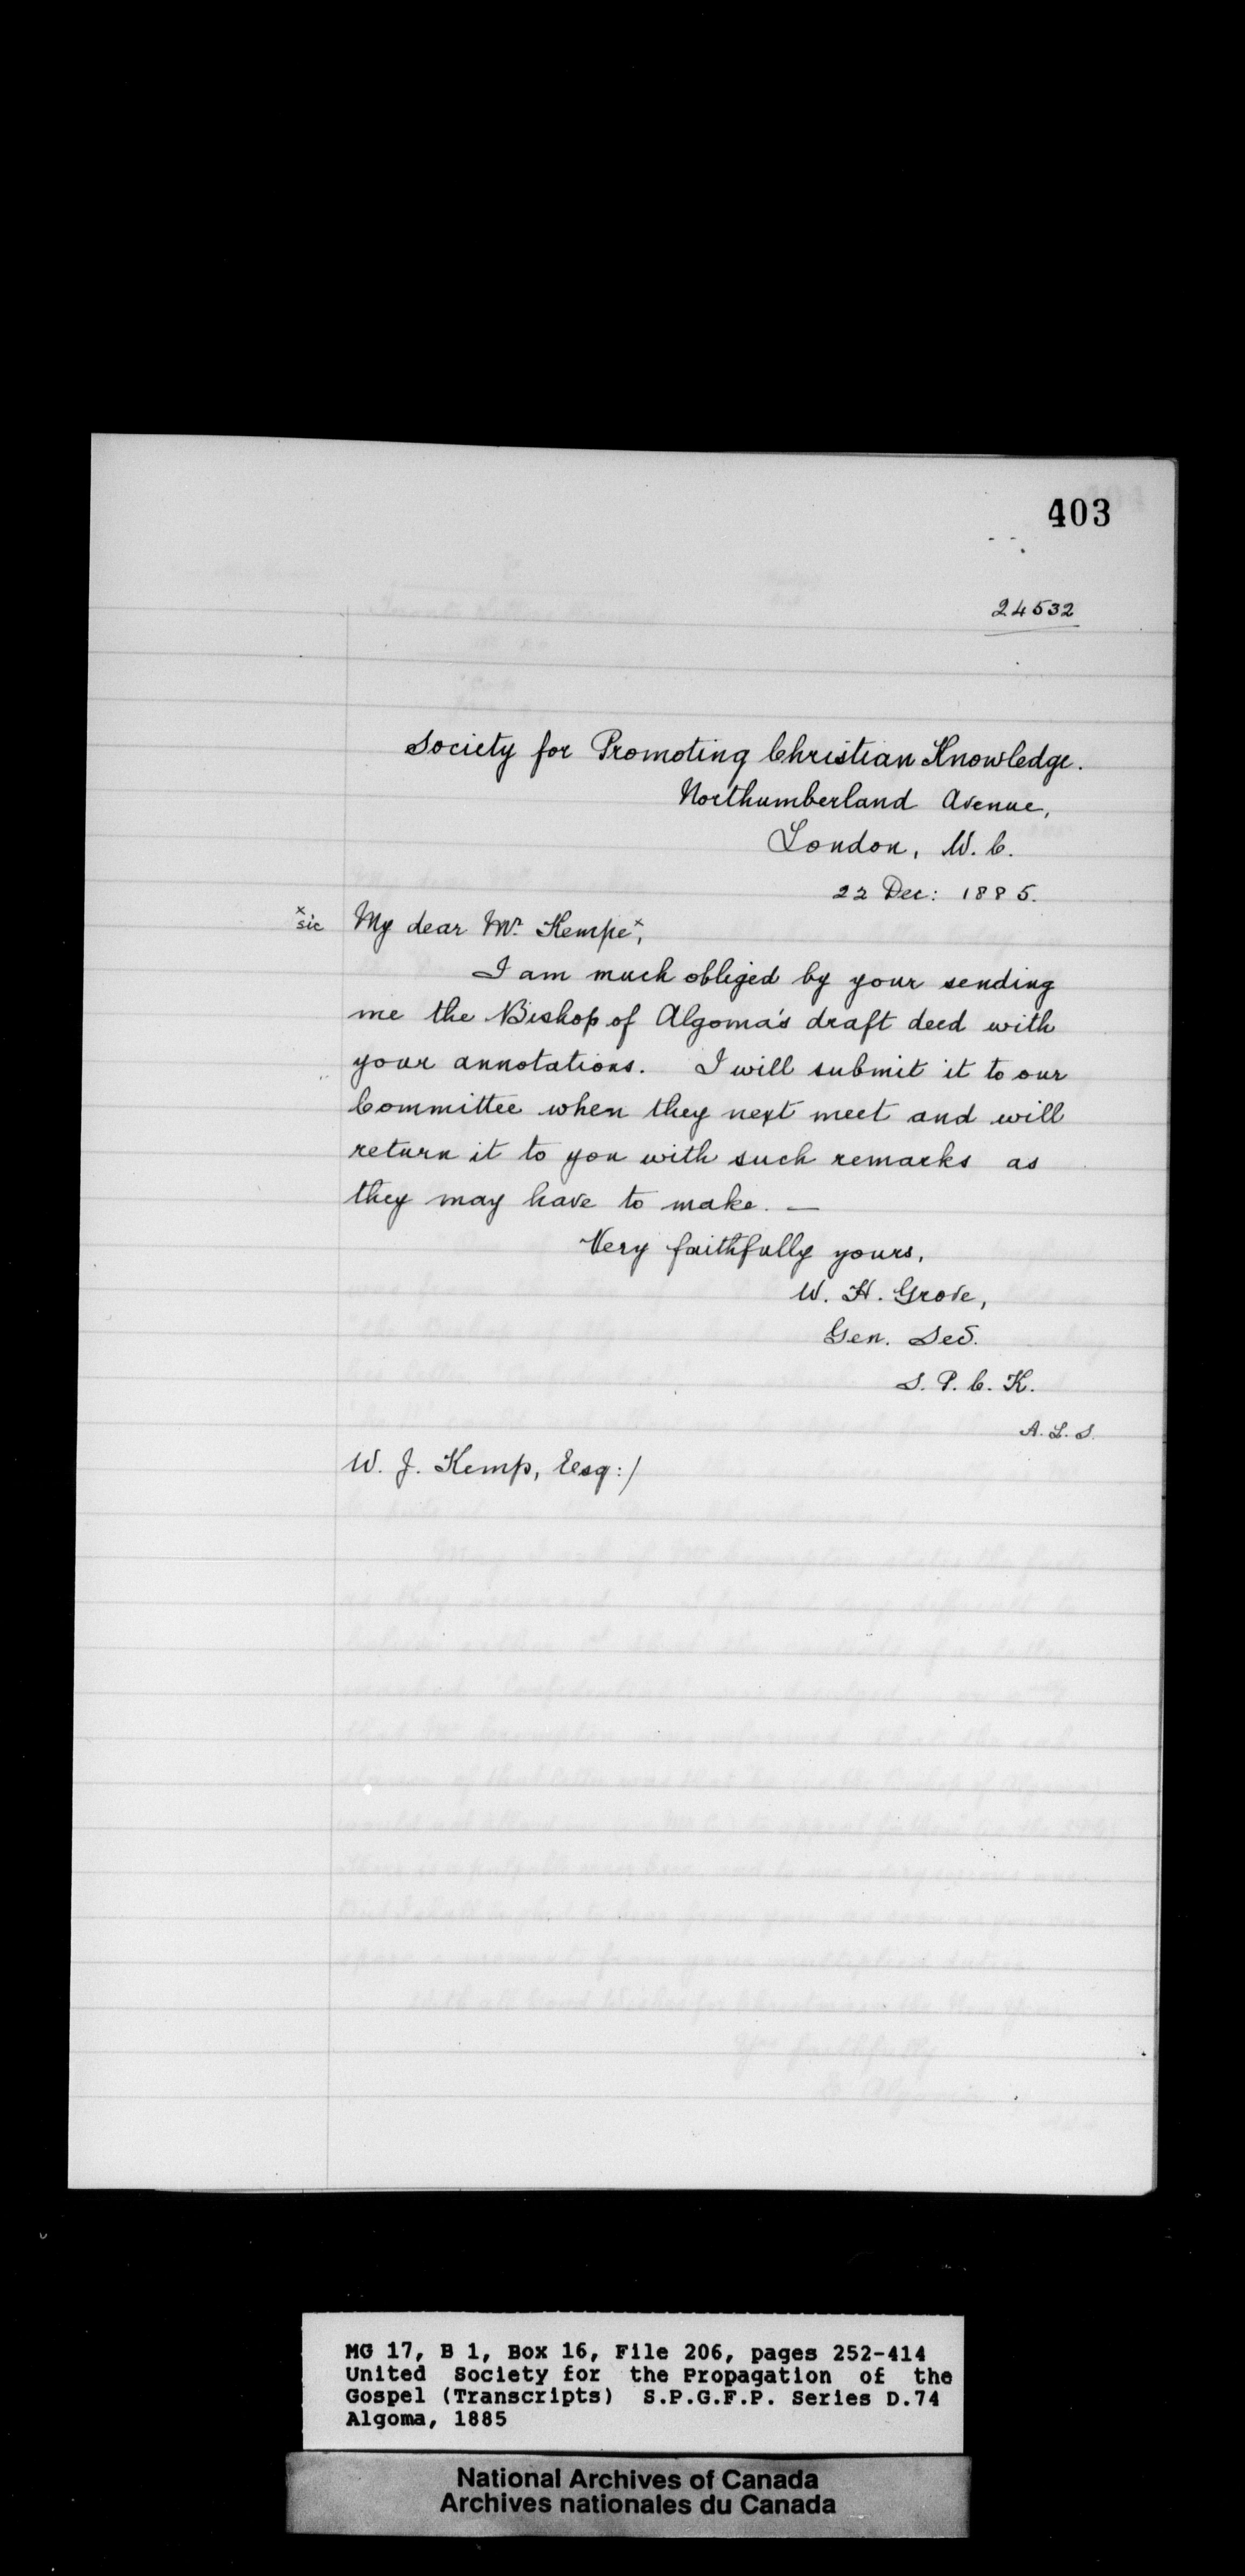 403
24532
Society for Promoting Christian Knowledge.
Northumberland Avenue,
London, W. C.
22 Dec: 1885.
x sic My dear Mr. Kempe x,
I am much obliged by your sending
me the Bishop of Algoma's draft deed with
your annotations. I will submit it to our
Committee when they next meet and will
return it to you with such remarks as
they may have to make. —
Very faithfully yours,
W. H. Grove,
Gen. Sec.
S. P. C. K.
A. L. S.
W. J. Kemp, Esq:/
MG 17, B 1, Box 16, File 206, pages 252-414
United Society for the Propagation of the
Gospel (Transcripts) S.P.G.F.P. Series D.74
Algoma, 1885
National Archives of Canada
Archives nationales du Canada